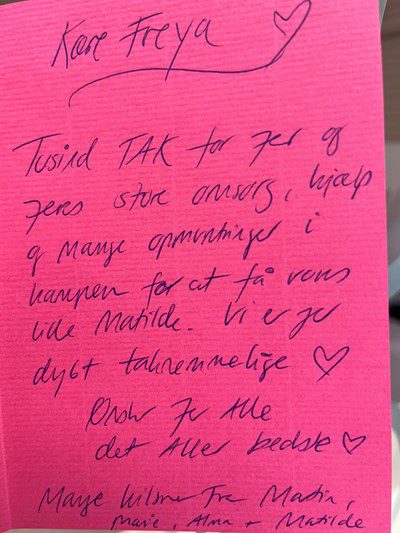 Kære Freya ♡
Tusind TAK for Jer og
Jeres store omsorg, hjælp
og Mange opmuntringer i
kampen for at få vores
lille Matilde. Vi er jer
dybt taknemmelige ♡
Ønsker Jer Alle
det Aller bedste ♡
Mange hilsner Fra Martin,
Marie, Alma + Matilde